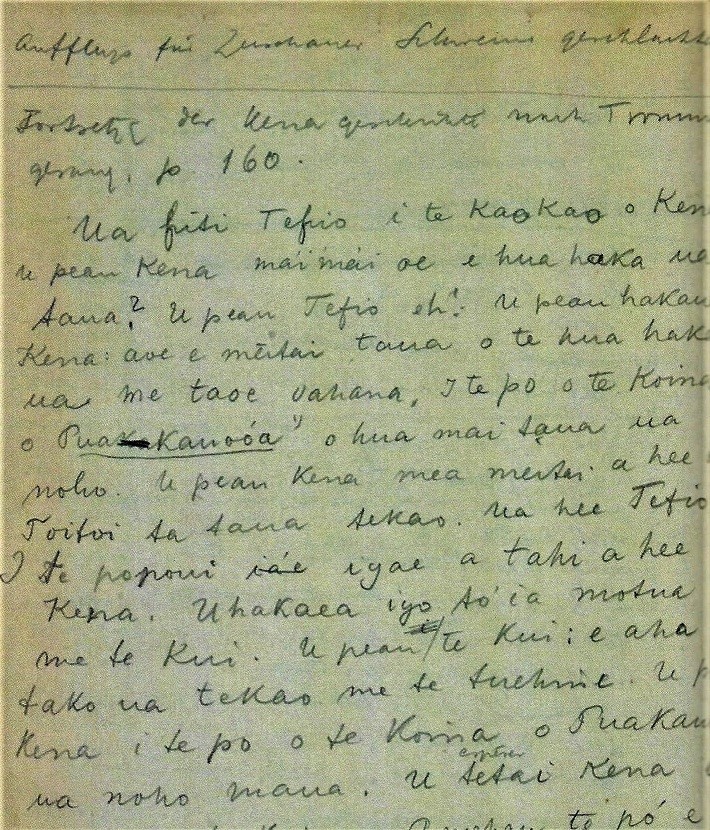 für Zuschauer Schweine geschlachte
der Kena geschichte nach Tromm
gesang, p. 160.
Ua fiti Tefio i te kaokao o Ken
u peau Kena mai mai oe e hua haka ua
taua? U peau Tefio eh! U peau hakau
Kena: aoe e meitai taua o te hua hak
ua me taoe vahana, I te po o te Koina
o Puakakauooa" o hua mai taua ua
noho. U peau Kena mea meitai. a hee
Toitoi ta taua tekao. Ua hee Tefio
I te popoui iáe igae a tahi a hee
Kena. Uhakaea igo tó ia motua
me te Kui. U peau te Kui: e aha
tako ua tekao me te tuehine. U p
Kena i te po o te Koina o Puakau
ua noho maua. U tetai Kena
te pó e